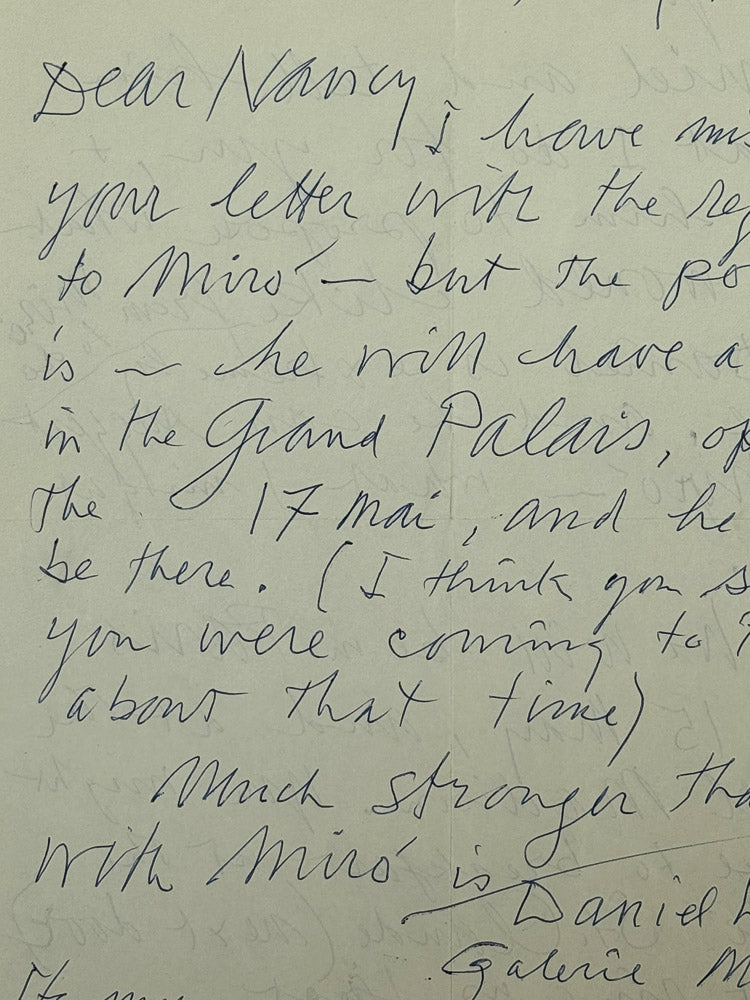 Dear Nancy
I have
your letter with the
to Miró — but the
is — he will have a
in the Grand Palais,
the 17 Mai, and he
be there. (I think you
you were coming to
about that time)
Much stronger
with Miró is
Daniel
Galerie